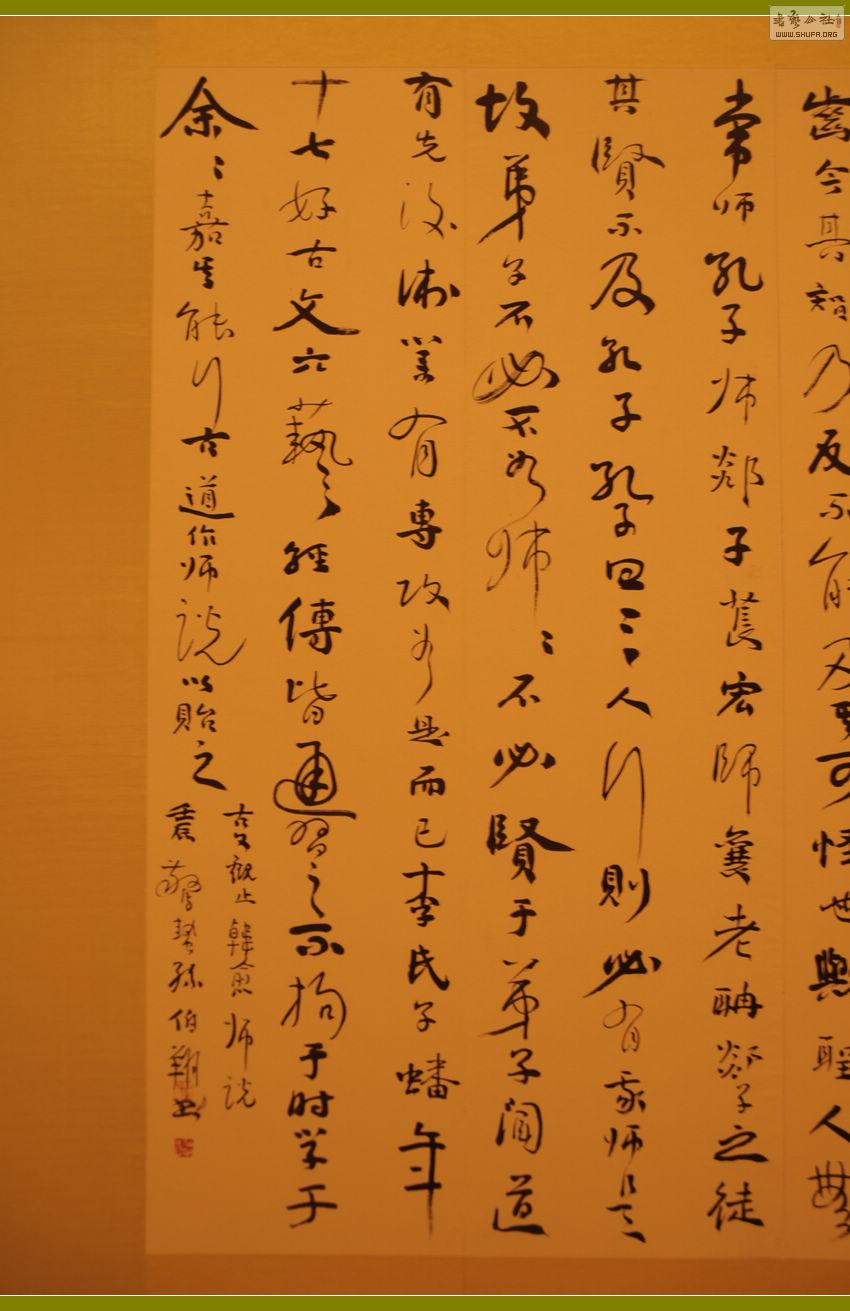 齒今其智乃反不能及可怪也歟聖人無
常师孔子师郯子萇宏師襄老聃郯子之徒
其賢不及孔子孔子曰三人行則必有我师是
故弟子不必不如师〻不必賢于弟子聞道
有先後術業有專攻如是而已李氏子蟠年
十七好古文六藝之經傳皆通習之不拘于时学于
余〻嘉其能行古道作师説以貽之
古文觀止韓愈师説
驚蟄孫伯翔书
书艺公社
WWW.SHUFA.ORG